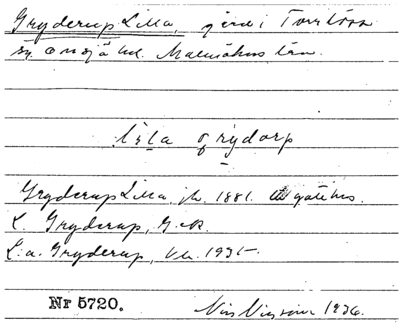 Gryderup Lilla, gård i Torrlösa
sn, Onsjö hd. Malmöhus län.
lila grydorp
Gryderup Lilla, jb. 1881.
L. Gryderup, G.K.
L:a. Gryderup, 1935
Nr 5720.
1936.